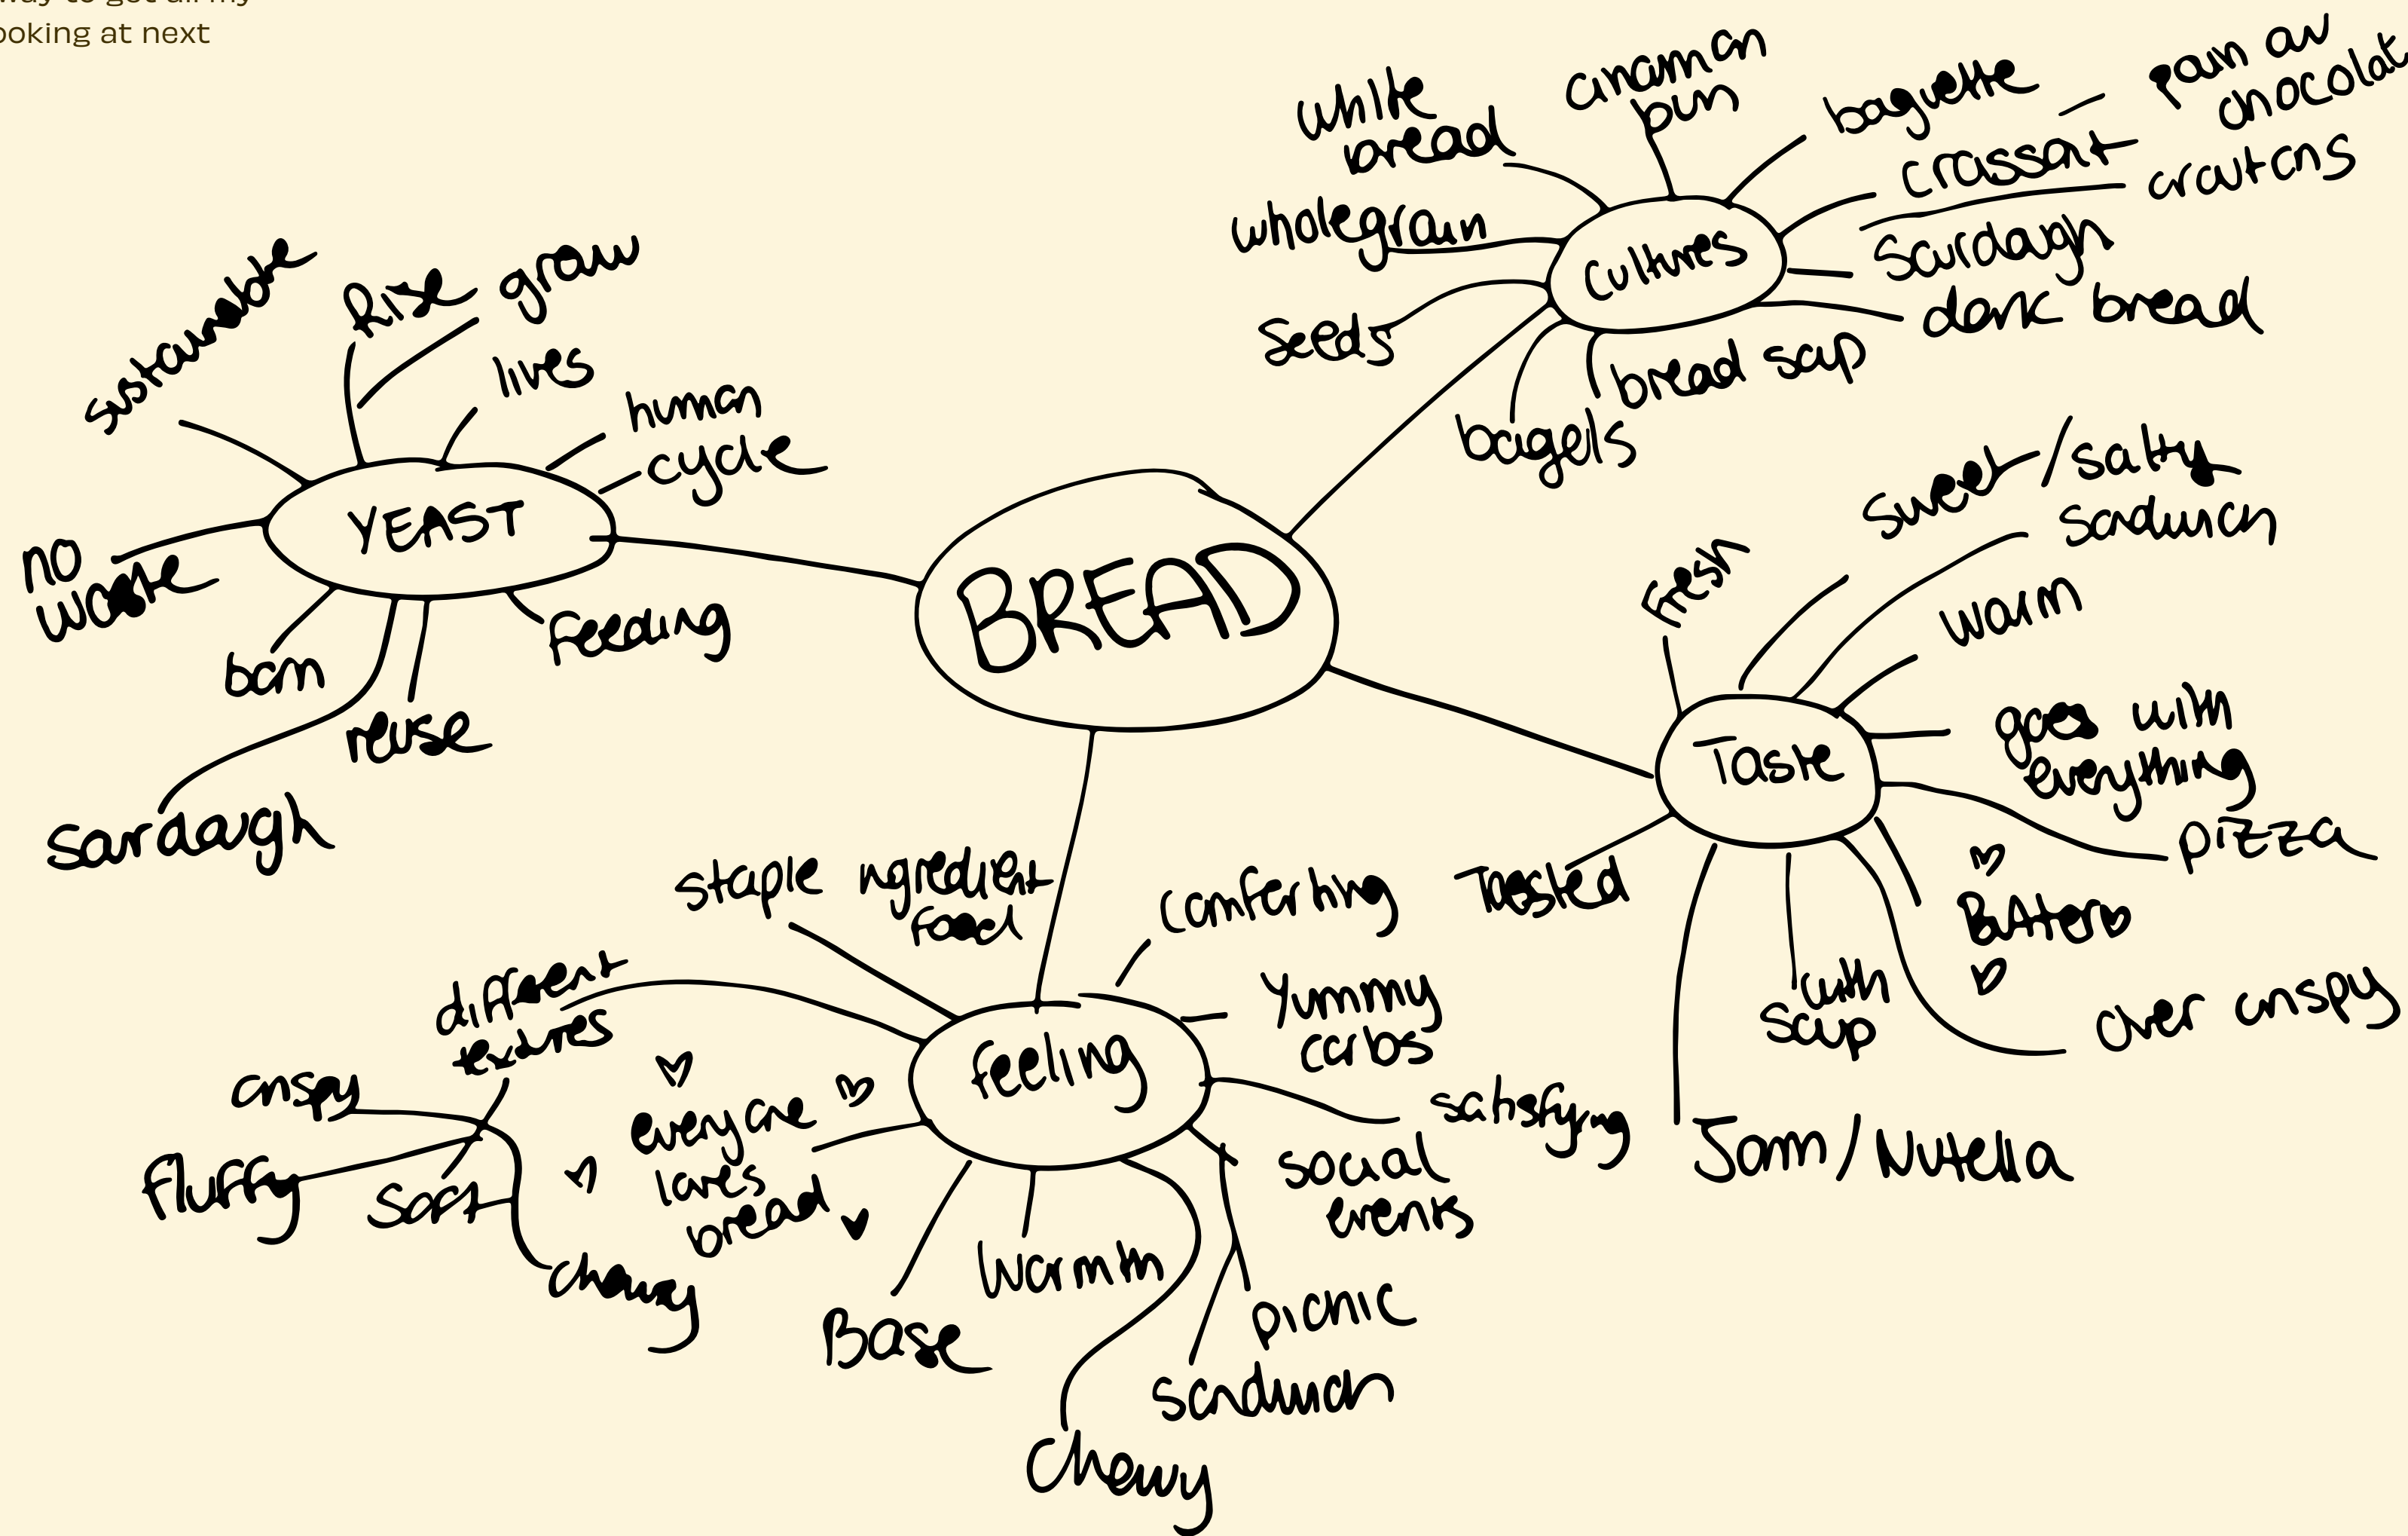 way to get all my
ooking at next
BREAD
YEAST
sustainable
Rise
grow
lives
human
cycle
no
waste
born
reuse
feeding
Sourdough
Cultures
white
bread
cinamon
bun
baguette
croissant
pain au
chocolat
croutons
Sourdough
dark bread
bread soup
bagels
seeds
wholegrain
Taste
fresh
sweet / salty
sandwich
warm
goes with
everything
pizza
Butter
over crispy
with
soup
Jam / Nutella
Toasted
feeling
staple
ingredient
food
comforting
Yummy
carbs
satisfying
social
events
picnic
sandwich
Chewy
Warmth
Base
everyone
loves
bread
different
textures
crispy
Fluffy
Soft
chewy